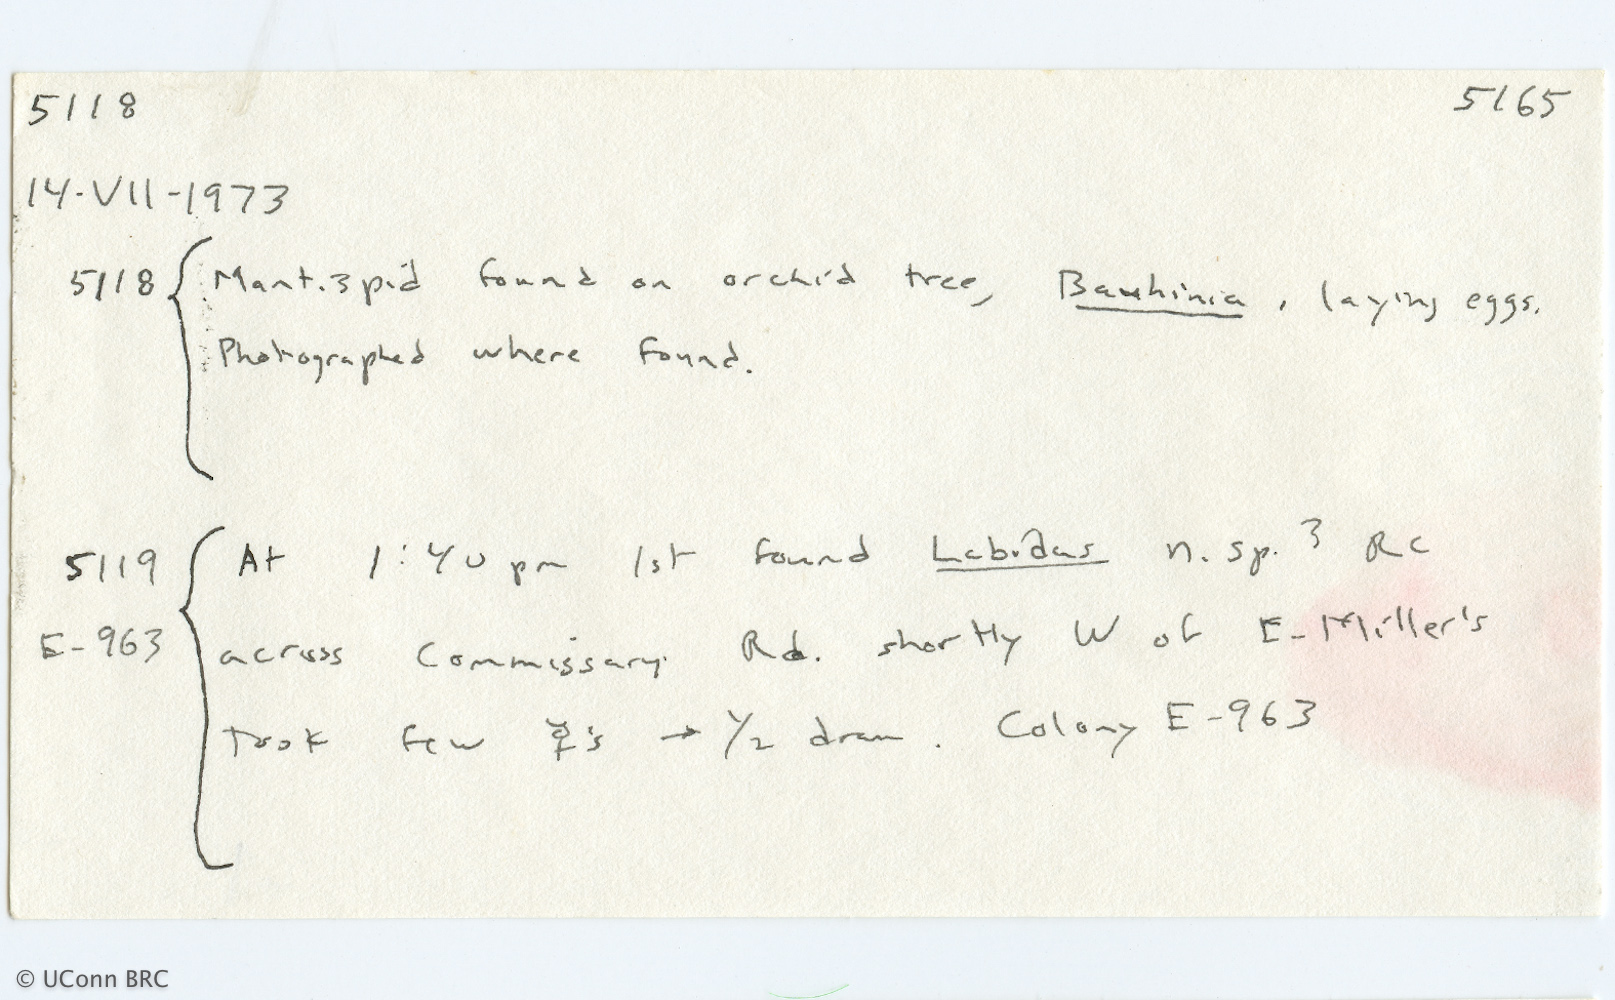 5118 5165
14-VII-1973
5118 Mantispid found on orchid tree, Bauhinia, laying eggs.
Photographed where found.
5119 At 1:40 pm 1st found Labidus n. sp. ? RC
E-963 across Commissary Rd. shortly W of E-Miller's
took few ☿'s → 1/2 dram. Colony E-963
© UConn BRC